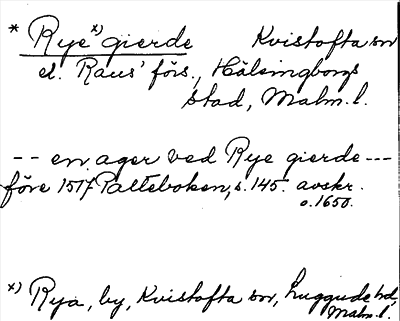 * Rye x) gierde Kvistofta sn
el. Raus' förs., Hälsingborgs
stad, Malm. l.
-- en ager ved Rye gierde ---
före 1517 Palteboken, s. 145. avskr.
o. 1650.
x) Rya, by, Kvistofta sn, Luggude hd,
Malm. l.